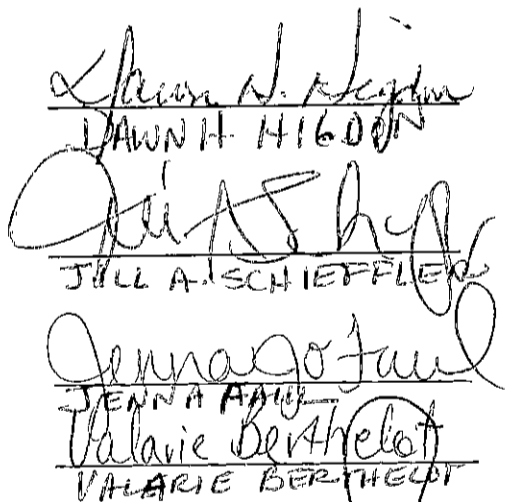 Dawn H. Higdon
DAWN H. HIGDON
JILL A. SCHIEFFLER
Jenna Jo Faul
JENNA FAUL
Valarie Berthelot
VALARIE BERTHELOT